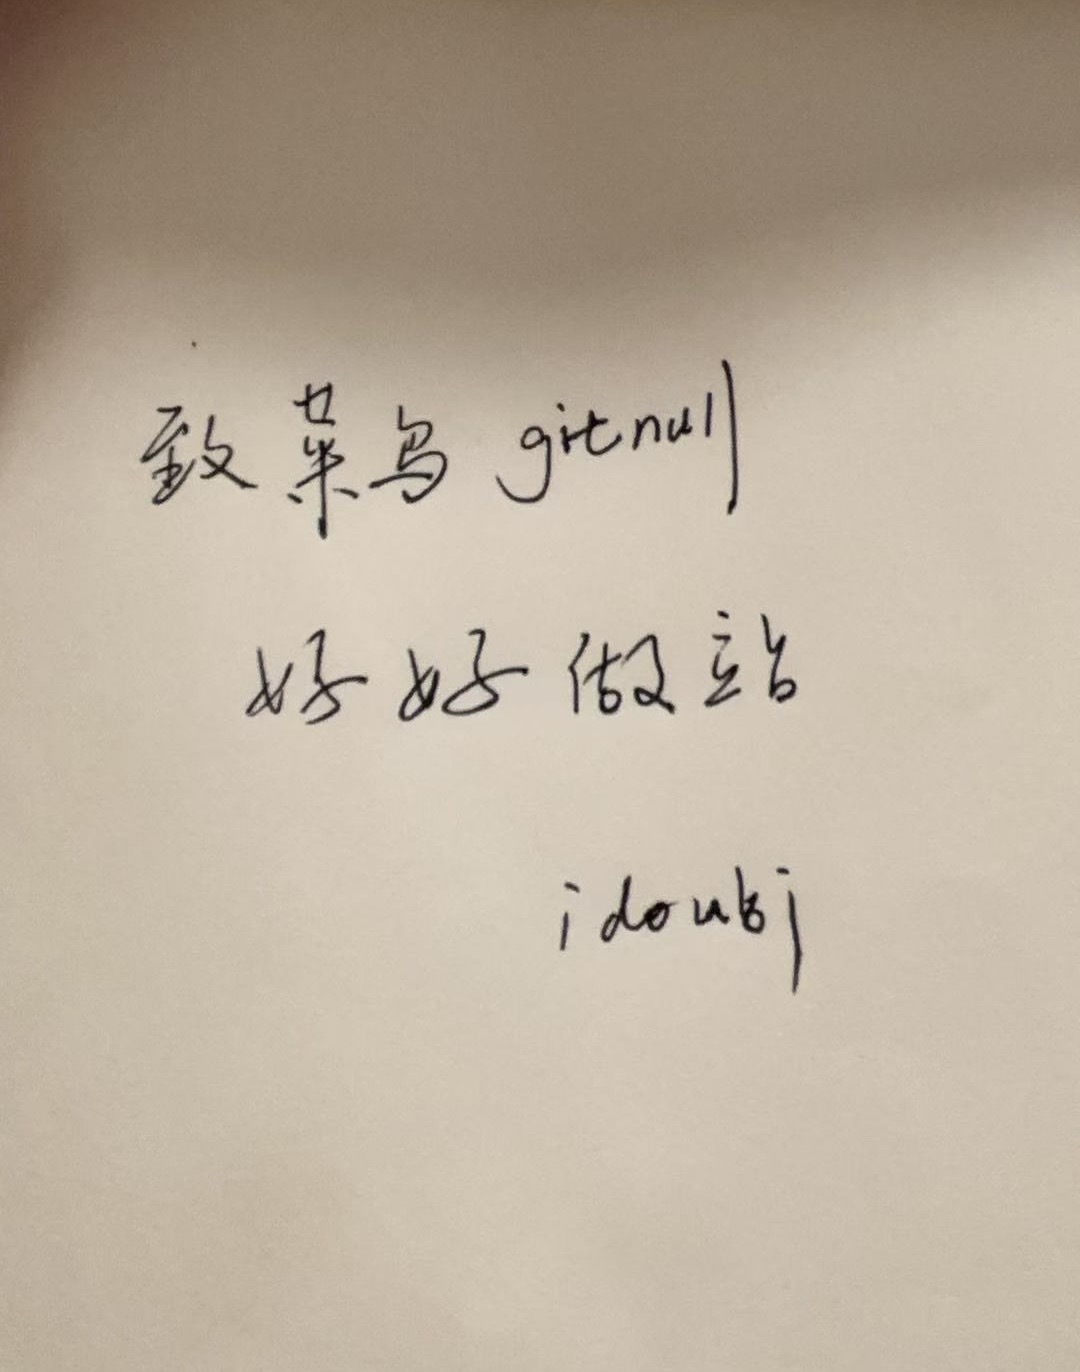 致菜鸟 gitnull
好好做站
idoubi